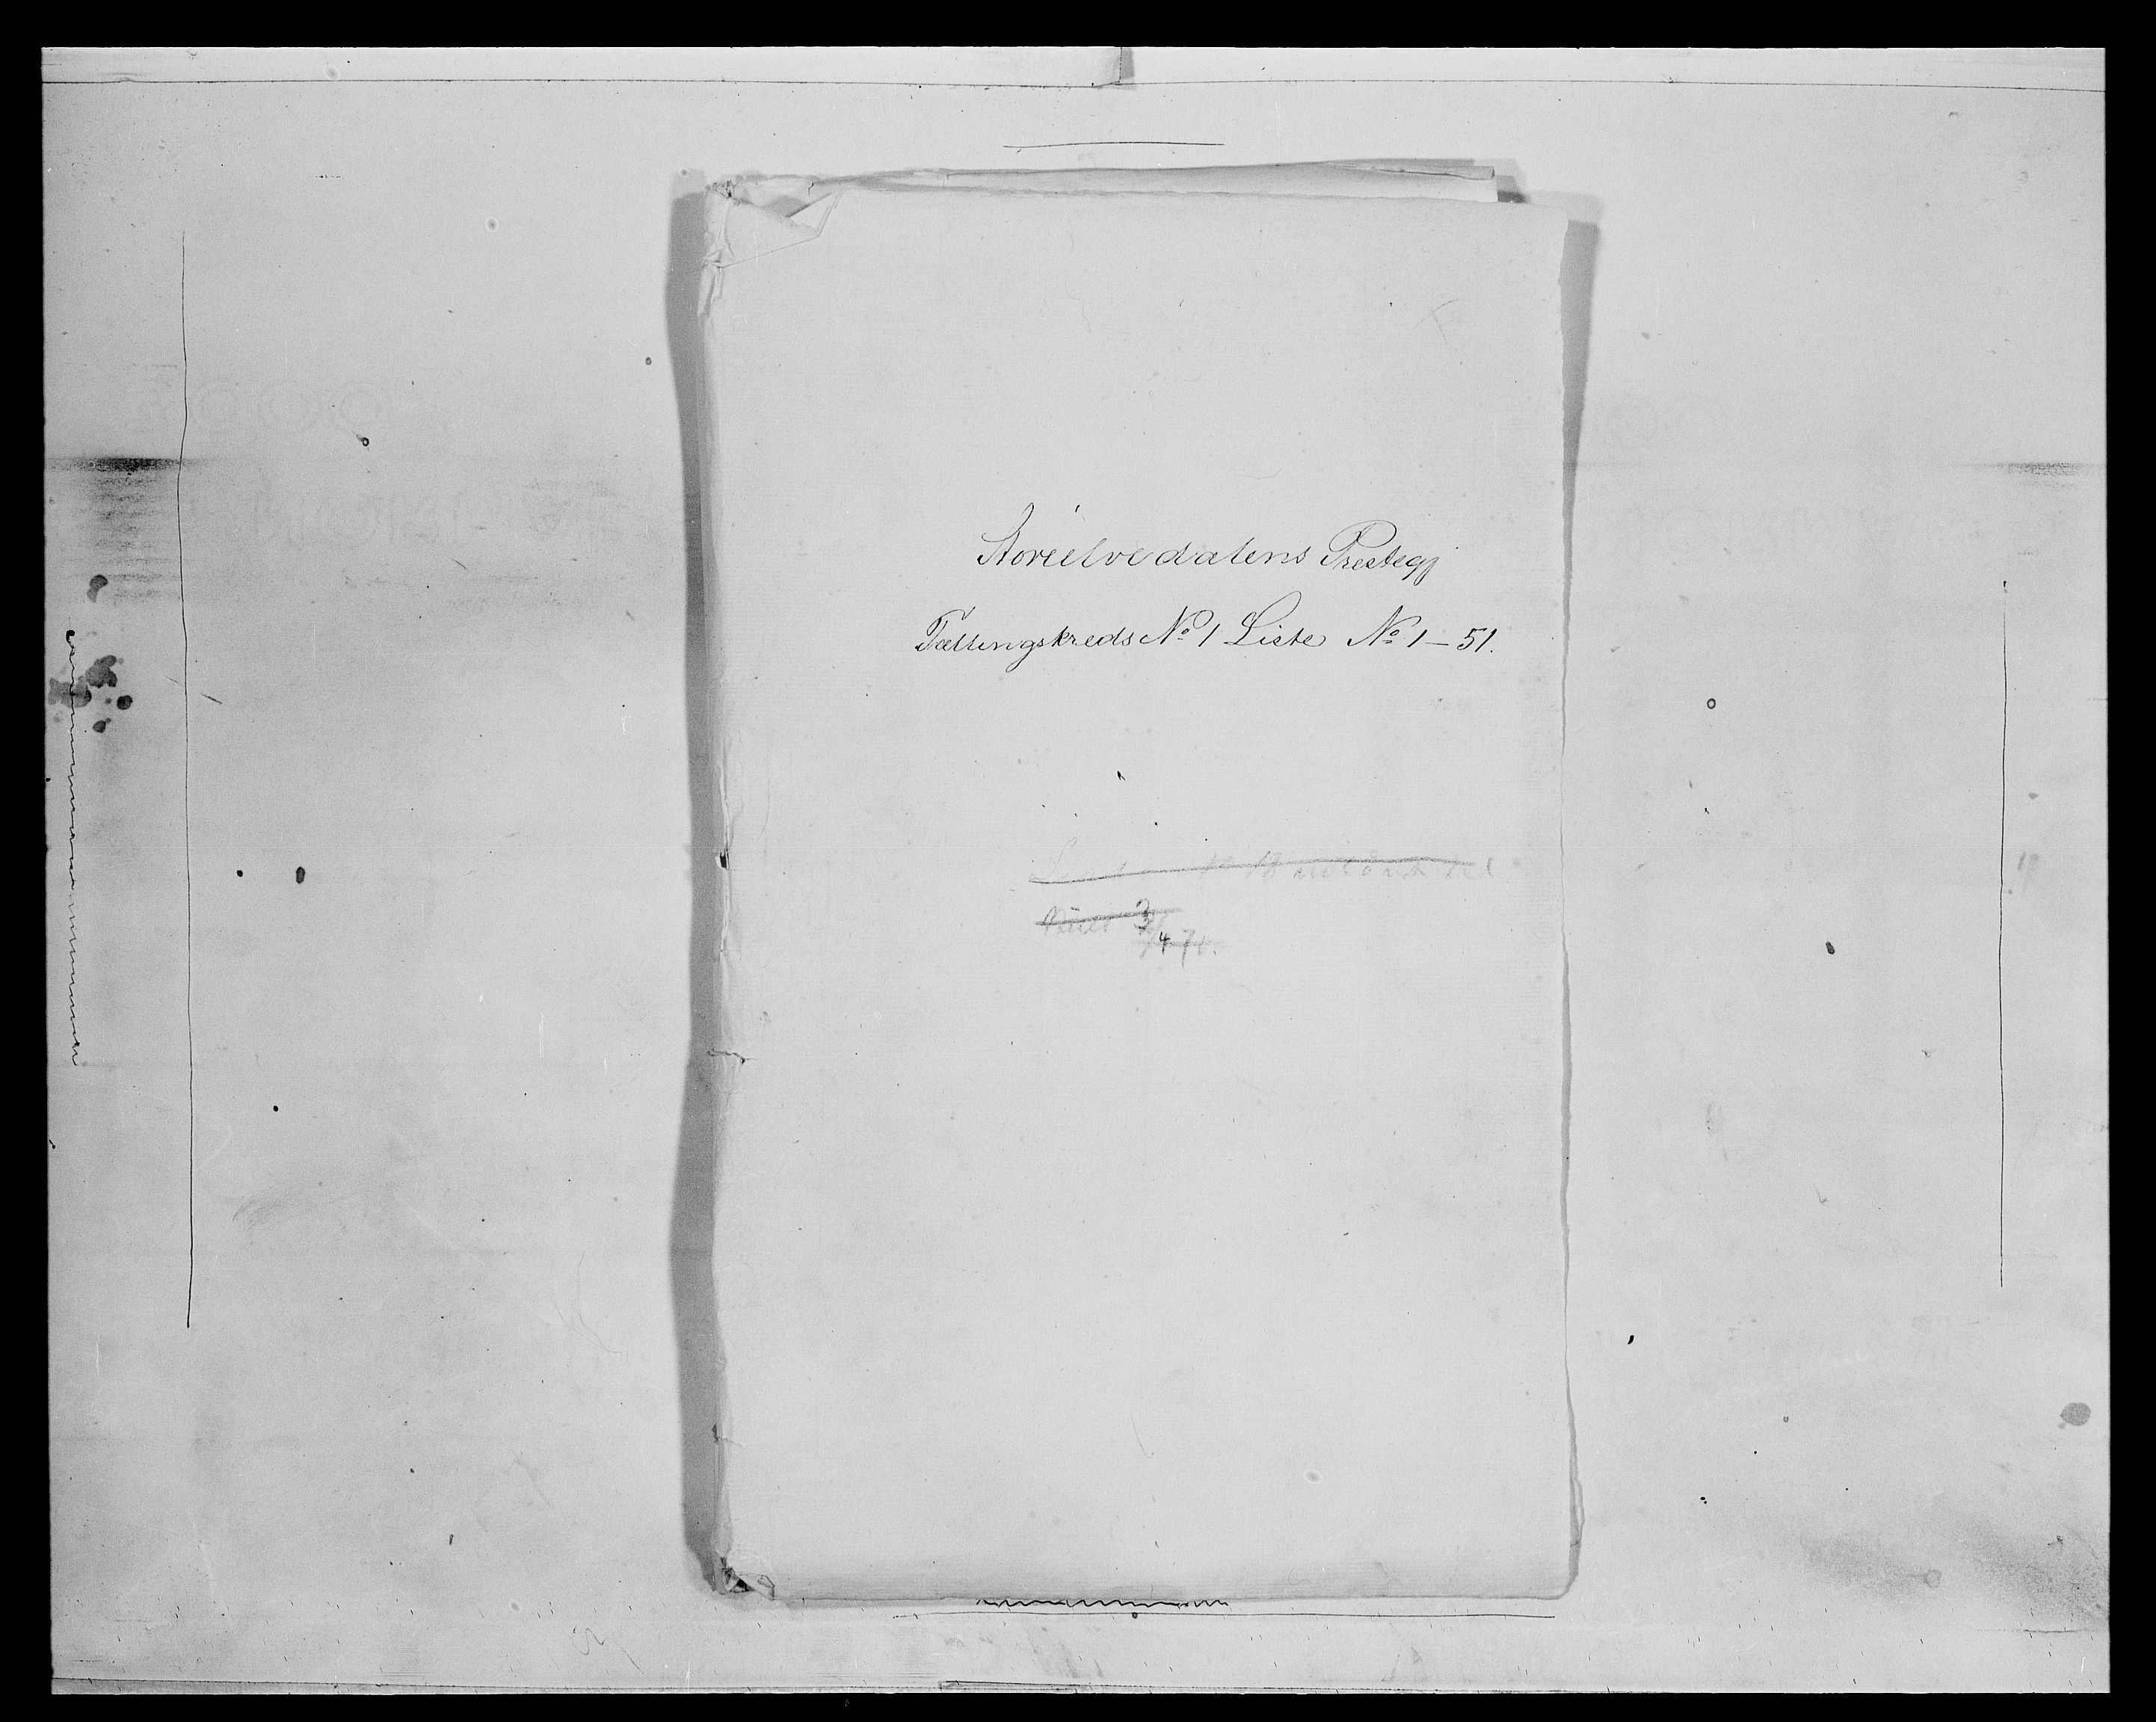 Storelvedalens Prestegj
Tællingskreds No 1 Liste No 1 – 51.
3/4 76.